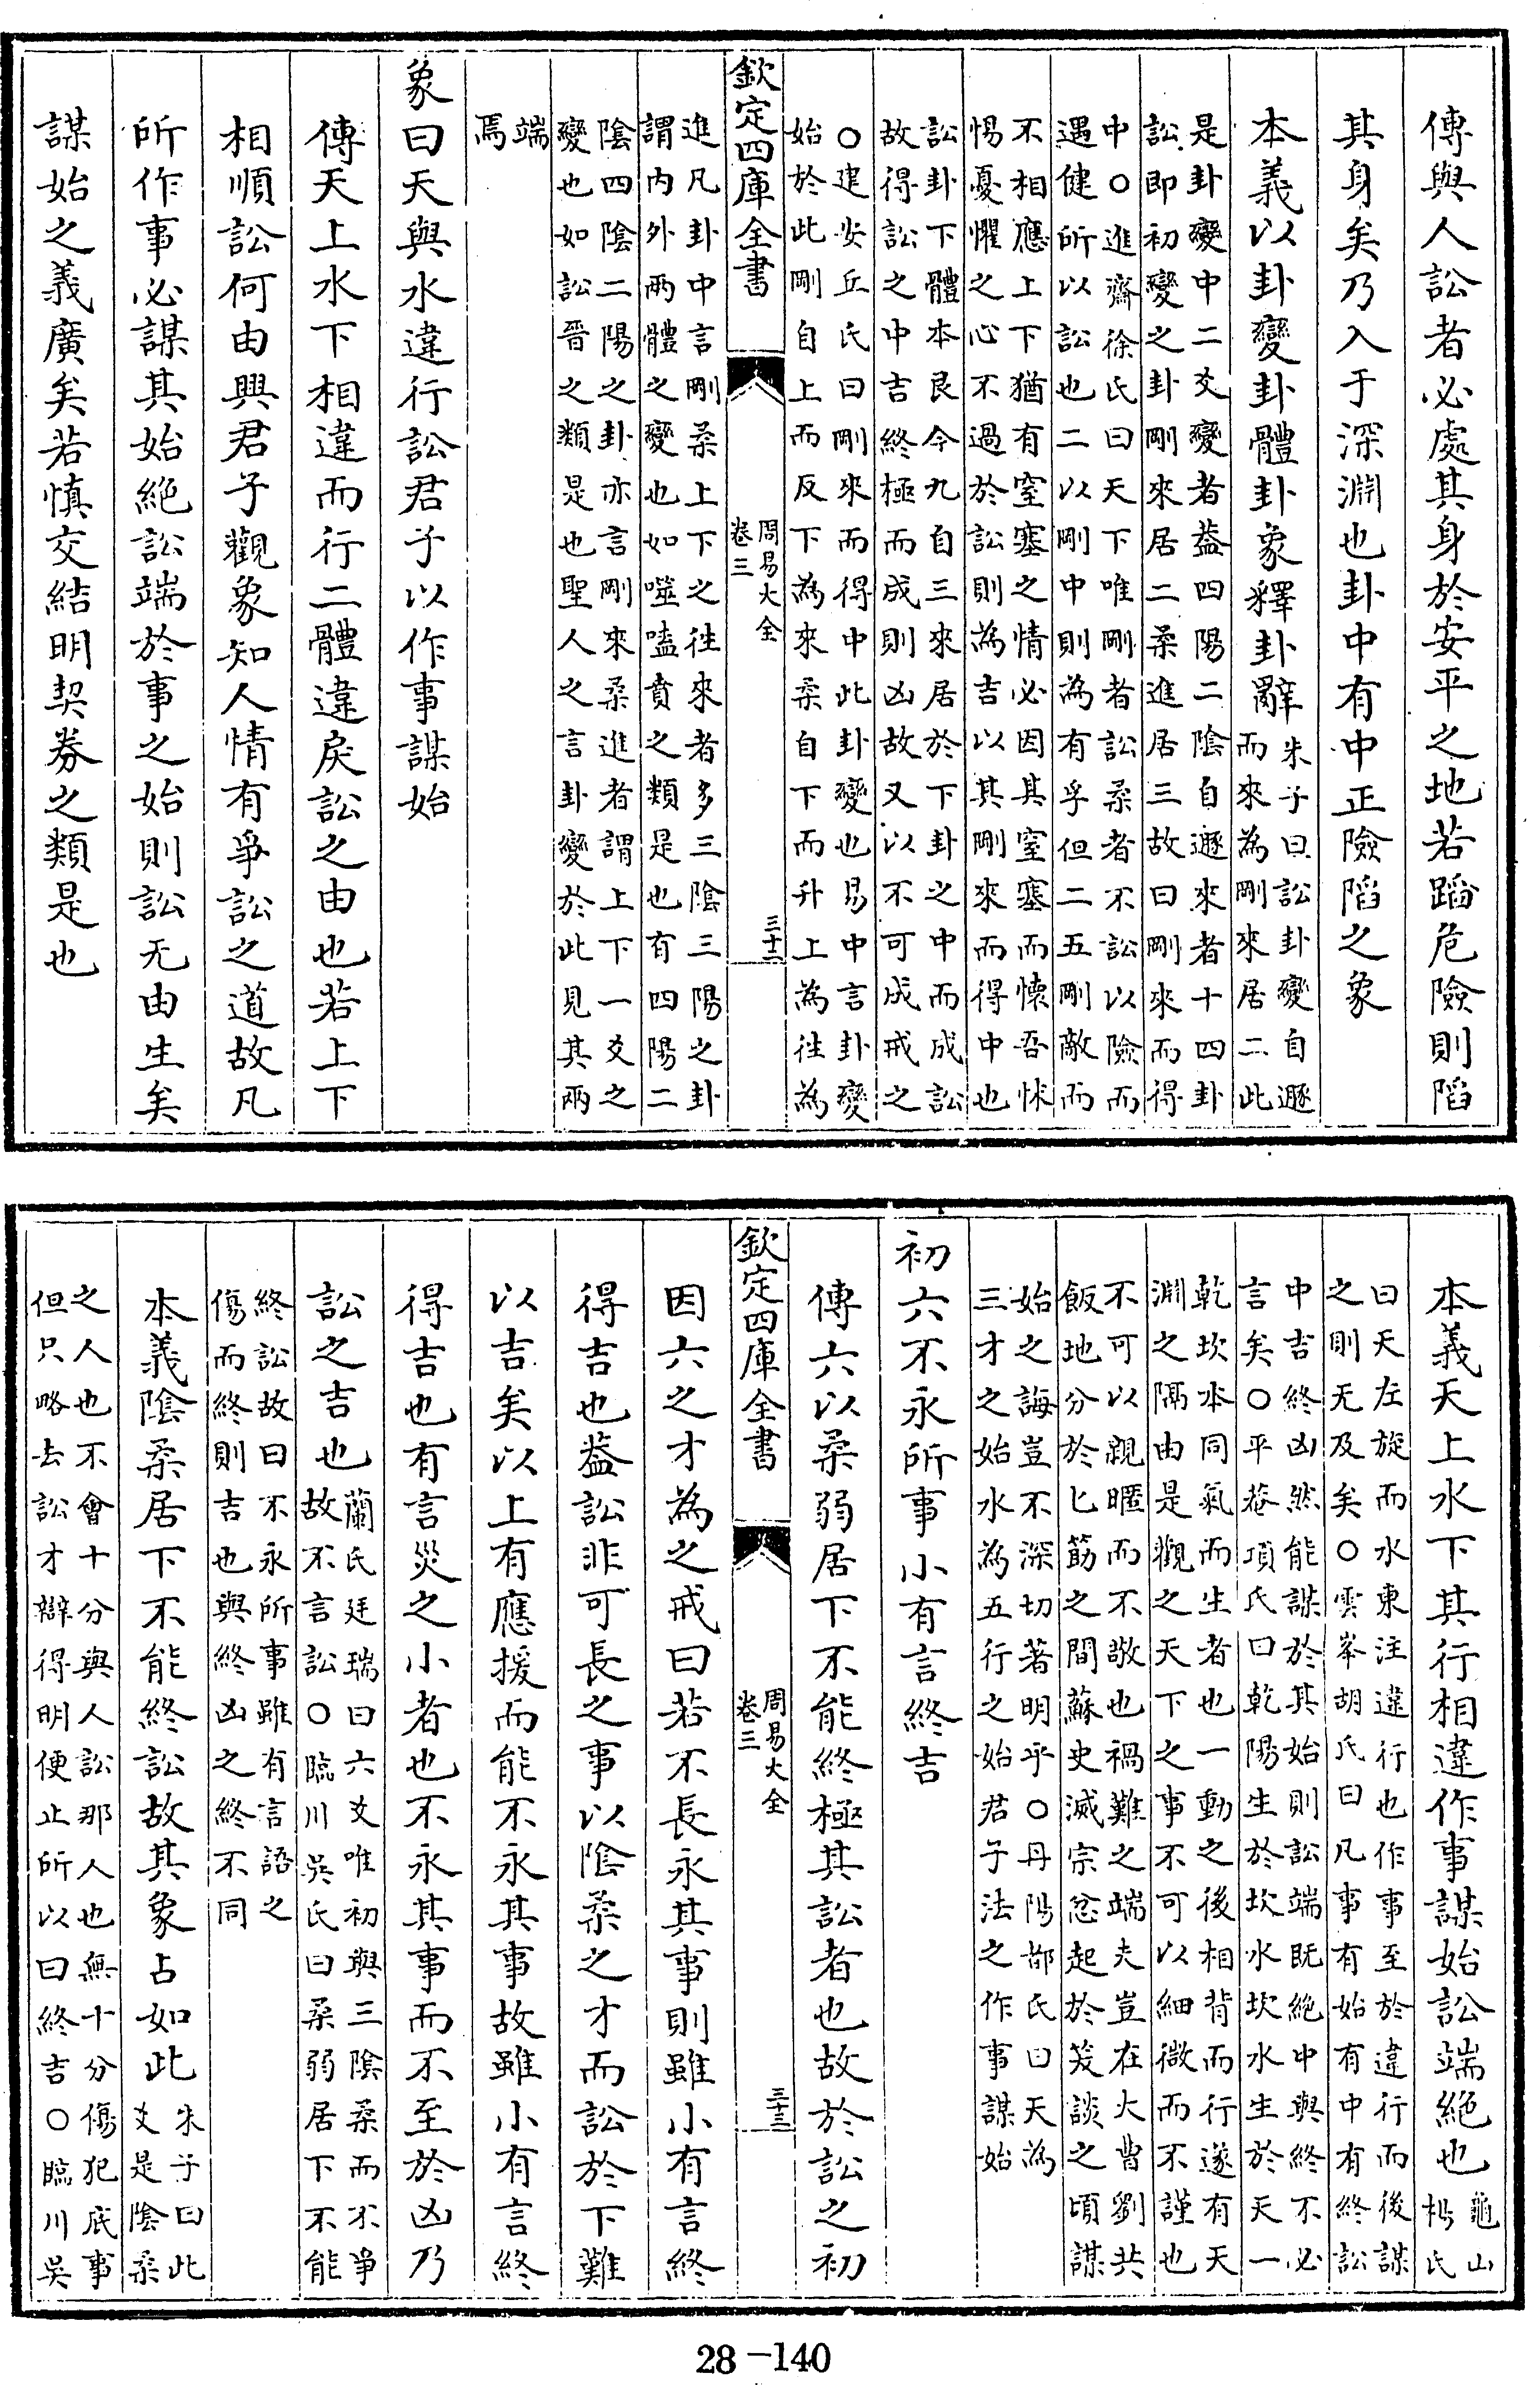 傳與人訟者必處其身於安平之地若蹈危險則陷
其身矣乃入于深淵也卦中有中正險陷之象
本義以卦變卦體卦象釋卦辭
朱子曰訟卦變自遯
而來為剛來居二此
是卦變中二爻變者葢四陽二陰自遯來者十四卦
訟即初變之卦剛來居二柔進居三故曰剛來而得
中○進齋徐氏曰天下唯剛者訟柔者不訟以險而
遇健所以訟也二以剛中則為有孚但二五剛敵而
不相應上下猶有窒塞之情必因其窒塞而懷吾怵
惕憂懼之心不過於訟則為吉以其剛來而得中也
訟卦下體本艮今九自三來居於下卦之中而成訟
故得訟之中吉終極而成則凶故又以不可成戒之
○建安丘氏曰剛來而得中此卦變也易中言卦變
始於此剛自上而反下為來柔自下而升上為往為
欽定四庫全書
周易大全
卷三
三十二
進凡卦中言剛柔上下之往來者多三陰三陽之卦
謂內外兩體之變也如噬嗑賁之類是也有四陽二
陰四陰二陽之卦亦言剛來柔進者謂上下一爻之
變也如訟晉之類是也聖人之言卦變於此見其兩
端
焉
象曰天與水違行訟君子以作事謀始
傳天上水下相違而行二體違戾訟之由也若上下
相順訟何由興君子觀象知人情有爭訟之道故凡
所作事必謀其始絕訟端於事之始則訟无由生矣
謀始之義廣矣若慎交結明契券之類是也
本義天上水下其行相違作事謀始訟端絕也
龜山
楊氏
曰天左旋而水東注違行也作事至於違行而後謀
之則无及矣○雲峯胡氏曰凡事有始有中有終訟
中吉終凶然能謀於其始則訟端既絕中與終不必
言矣○平菴項氏曰乾陽生於坎水坎水生於天一
乾坎本同氣而生者也一動之後相背而行遂有天
淵之隔由是觀之天下之事不可以細微而不謹也
不可以親暱而不敬也禍難之端夫豈在大曹劉共
飯地分於匕筯之間蘇史滅宗忿起於笑談之頃謀
始之誨豈不深切著明乎○丹陽都氏曰天為
三才之始水為五行之始君子法之作事謀始
初六不永所事小有言終吉
傳六以柔弱居下不能終極其訟者也故於訟之初
欽定四庫全書
周易大全
卷三
三十三
因六之才為之戒曰若不長永其事則雖小有言終
得吉也葢訟非可長之事以陰柔之才而訟於下難
以吉矣以上有應援而能不永其事故雖小有言終
得吉也有言災之小者也不永其事而不至於凶乃
訟之吉也
蘭氏廷瑞曰六爻唯初與三陰柔而不爭
故不言訟○臨川吳氏曰柔弱居下不能
終訟故曰不永所事雖有言語之
傷而終則吉也與終凶之終不同
本義陰柔居下不能終訟故其象占如此
朱子曰此
爻是陰柔
之人也不會十分與人訟那人也無十分傷犯底事
但只略去訟才辯得明便止所以曰終吉○臨川吳
28-140